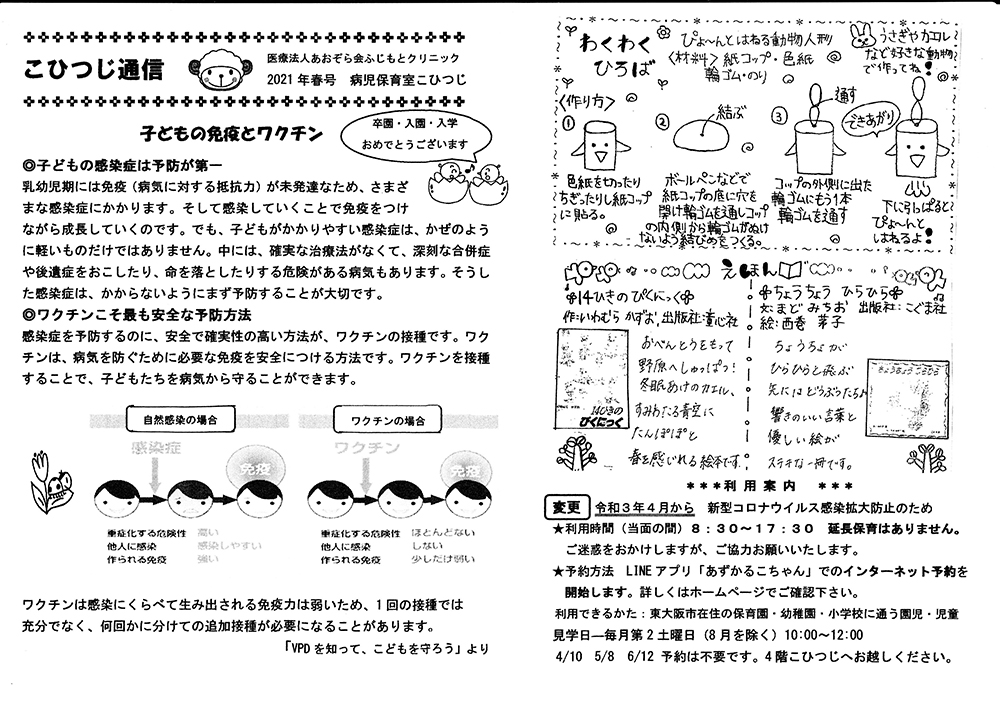 こひつじ通信
医療法人あおぞら会ふじもとクリニック
2021年春号　病児保育室こひつじ
子どもの免疫とワクチン
卒園・入園・入学
おめでとうございます
◎子どもの感染症は予防が第一
乳幼児期には免疫（病気に対する抵抗力）が未発達なため、さまざ
まな感染症にかかります。そして感染していくことで免疫をつけ
ながら成長していくのです。でも、子どもがかかりやすい感染症は、かぜのよう
に軽いものだけではありません。中には、確実な治療法がなくて、深刻な合併症
や後遺症をおこしたり、命を落としたりする危険がある病気もあります。そうし
た感染症は、かからないようにまず予防することが大切です。
◎ワクチンこそ最も安全な予防方法
感染症を予防するのに、安全で確実性の高い方法が、ワクチンの接種です。ワク
チンは、病気を防ぐために必要な免疫を安全につける方法です。ワクチンを接種
することで、子どもたちを病気から守ることができます。
自然感染の場合
感染症
免疫
重症化する危険性　高い
他人に感染　感染しやすい
作られる免疫　強い
ワクチンの場合
ワクチン
免疫
重症化する危険性　ほとんどない
他人に感染　しない
作られる免疫　少しだけ弱い
ワクチンは感染にくらべて生み出される免疫力は弱いため、1回の接種では
充分でなく、何回かに分けての追加接種が必要になることがあります。
「VPDを知って、こどもを守ろう」より
わくわく
ひろば
ぴょ〜んとはねる動物人形
〈材料〉紙コップ・色紙
輪ゴム・のり
うさぎやカエル
など好きな動物
で作ってね！
〈作り方〉
①
色紙を切ったり
ちぎったりし紙コップ
に貼る。
②
結ぶ
ボールペンなどで
紙コップの底に穴を
開け輪ゴムを通しコップ
の内側から輪ゴムがぬけ
ないよう結びめをつくる。
③
通す
コップの外側に出た
輪ゴムにもう1本
輪ゴムを通す
できあがり
下に引っぱると
ぴょ〜んと
はねるよ！
えほん
14ひきのぴくにっく
作：いわむらかずお、出版社：童心社
おべんとうをもって
野原へしゅっぱつ！
冬眠あけのカエル、
すみわたる青空に
たんぽぽと
春を感じれる絵本です。
14ひきの
ぴくにっく
ちょうちょう ひらひら
文：まど みちお　出版社：こぐま社
絵：西巻 茅子
ちょうちょが
ひらひらと飛ぶ
先にはどうぶつたち♪
響きのいい言葉と
優しい絵が
ステキな一冊です。
***利用案内　***
変更　令和3年4月から　新型コロナウイルス感染拡大防止のため
★利用時間（当面の間）8：30〜17：30　延長保育はありません。
ご迷惑をおかけしますが、ご協力お願いいたします。
★予約方法　LINEアプリ「あずかるこちゃん」でのインターネット予約を
開始します。詳しくはホームページでご確認下さい。
利用できるかた：東大阪市在住の保育園・幼稚園・小学校に通う園児・児童
見学日―毎月第2土曜日（8月を除く）10:00〜12:00
4/10　5/8　6/12　予約は不要です。4階こひつじへお越しください。